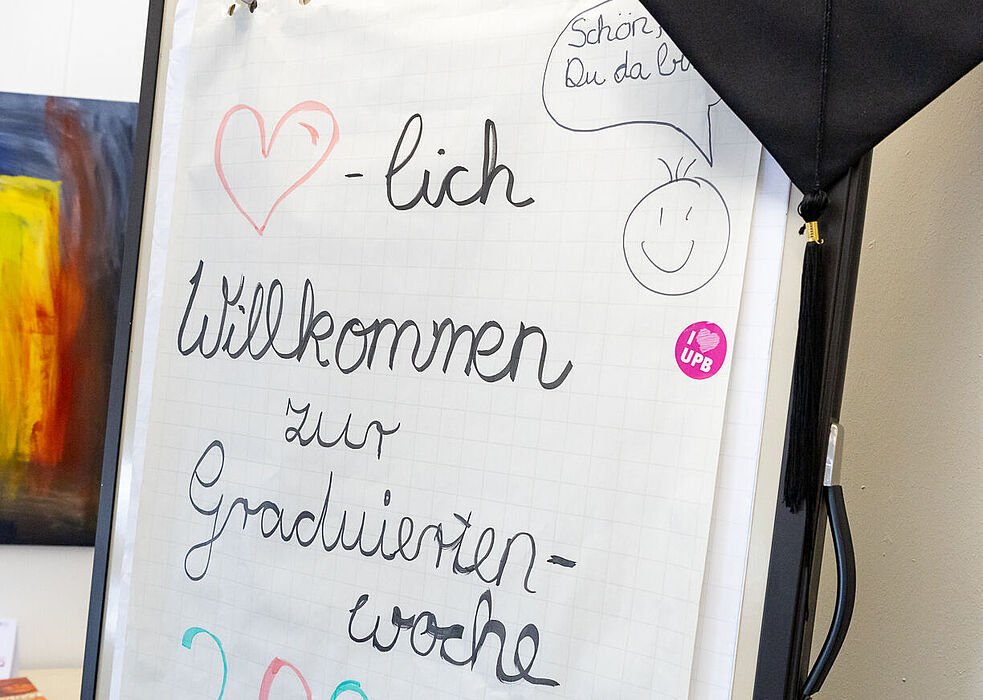 Schön,
Du da
-lich
Willkommen
zur
Graduierten-
woche
I
UPB